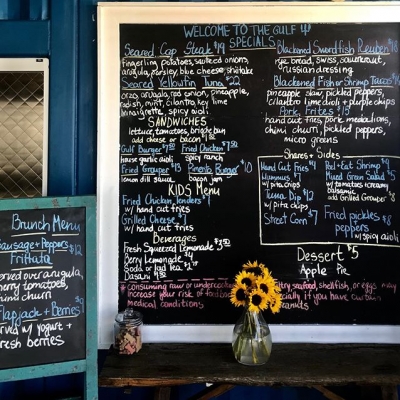 WELCOME TO THE GULF
SPECIALS
Seared Cap Steak $19
fingerling potatoes, sauteed onions,
arugula, parsley, blue cheese, shiitake
Seared Yellowfin Tuna $22
orzo, arugula, red onion, pineapple,
radish, mint, cilantro, key lime
vinaigrette, spicy aioli
SANDWICHES
lettuce, tomatoes, brioche bun
add cheese or bacon
Gulf Burger
Fried Chicken
house garlic aioli
spicy ranch
Fried Grouper $13
Pimento Burger $10
lemon dill sauce
bacon jam
KIDS Menu
Fried Chicken Tenders
w/ hand cut fries
Grilled Cheese
w/ hand cut fries
Beverages
Fresh Squeezed Lemonade
Berry Lemonade $4
Soda or Iced Tea
Dasani
Blackened Swordfish Reuben
rye bread, swiss, sauerkraut,
russian dressing
Blackened Fish or Shrimp Tacos
pineapple slaw, pickled peppers,
cilantro lime aioli + purple chips
Pork Frites $15
hand cut fries, pork medallions,
chimi churri, pickled peppers,
micro greens
Shares + Sides
Hand Cut Fries $4
Hummus
w/ pita chips
Tuna Dip $12
w/ pita chips
Street Corn $7
Peel + Eat Shrimp
Mixed Green Salad $5
w/ tomatoes + creamy
balsamic
add Grilled Grouper
Fried pickles $8
+ peppers
w/ spicy aioli
Dessert $5
Apple Pie
*consuming raw or undercooked
increase your risk of
medical conditions
seafood, shellfish, or eggs may
especially if you have certain
Brunch Menu
Sausage + Peppers
Frittata
served over arugula,
cherry tomatoes,
chimi churri
Flapjack + Berries
served w/ yogurt +
fresh berries